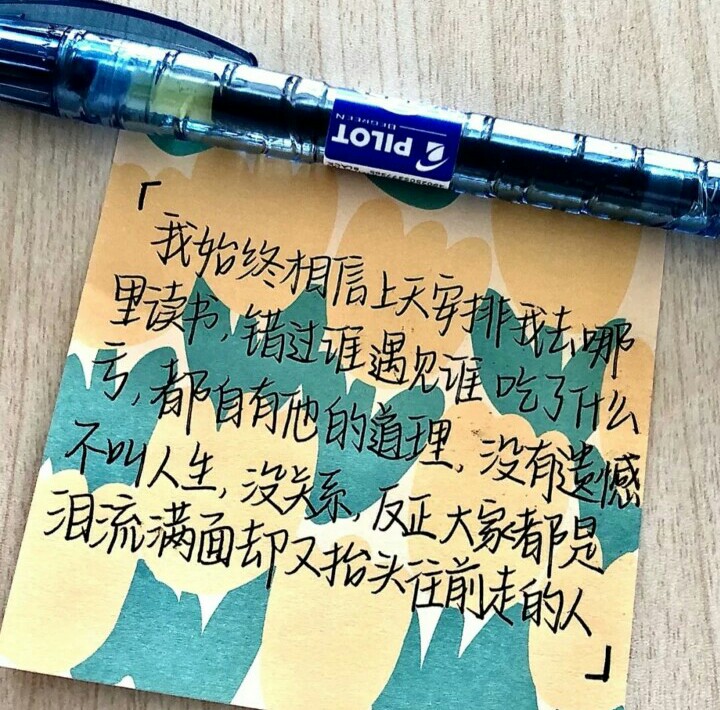 PILOT
BEGREEN
BLACK
「
我始终相信上天安排我去哪
里读书,错过谁遇见谁 吃了什么
亏,都自有他的道理,没有遗憾
不叫人生,没关系,反正大家都是
泪流满面却又抬头往前走的人
」